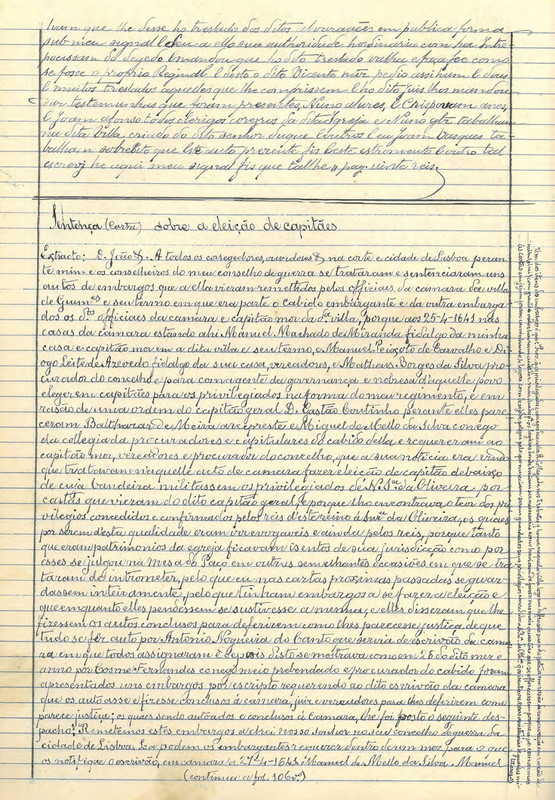 dizem que lhe desse ho treslado das ditos doaraçoões em publica forma
sub meu signal e deu a ello sua authoridade hordinaria com ha Intre-
possissam do degredo e mandou que ho dito treslado valha e faça fee como
se fosse o proprio Reginall e desto o dito Vicente nuz pedio assi hum e dous
e muitos treslados aquelles que lhe comprissem e ho dito juis lhos mandou
dar testemunhas que foram presentes, Nuno alures, e Crisptovam anes,
e Joam afonso todos clerigos coregos da dita Igreja e Nuno glz taballiam
na dita villa, criado do dito senhor duque e outros e eu Joam vasques ta-
balliam sobredito que este auto prezente fis e este estromento e outro tal
escrevy he aqui meu signal fis que tal he
Sentença (Carta) sobre a eleição de capitães
Extracto: D. João &. A todos os corregedores, ouvidores & na corte e cidade de Lisboa, peran-
te mim e os conselheiros do meu conselho de guerra se trataram e sentenciaram uns
autos de embargos que a ella vieram remettidos pelos officiaes da camara da villa
de Guimes e seu termo em que era parte o cabido embargante e da outra embarga-
dos os dtos officiaes da camara e capitão mor da dta villa, porque aos 25-4-1643 nas
casas da camara estando ahi Manuel Machado de Miranda fidalgo da minha
casa e capitão mor em a dita villa e seu termo, e Manuel Peixoto de Carvalho e Di-
ogo Leite de Azevedo fidalgo da sua casa, vereadores, e Matheus Borges da Silva pro-
curador do concelho e para com a gente da governança e nobreza d'aquelle povo
elegerem capitães para os privilegiados na forma do meu regimento, e em
rasão de uma ordem do capitão geral D. Gastão Coutinho, perante elles pare-
ceram Balthazar de Meira arcypreste e Miguel de Mello da Silva conego
da collegiada procuradores e capitulares do cabido della e requereram ao
capitão mor, vereadores e procurador do concelho, que a sua noticia era vindo
que tratavam naquelle auto de camara fazer eleição de capitão debaixo
de cuja bandeira militassem os privilegiados de N. Sra da Oliveira por
cartas que vieram do dito capitão geral, e porque lho encontrava o teor dos pri-
vilegios concedidos e confirmados pelos reis d'este reino á Snra da Oliveira, os quaes
por serem desta qualidade eram irrevogaveis e ainda pelos reis, porque tanto
que eram patrimonios da egreja ficavam isentos de sua jurisdicção como por
esses se julgou na Mesa do Paço em outras semelhantes occasiões em que se tra-
taram de intrometer, pelo que eu nas cartas proximas passadas se guar-
dassem inteiramente, pelo que tinham embargos a se fazer a eleição e
que emquanto elles pendessem se sustivesse a mesma, e elles disseram que lhe
fizessem os autos conclusos para deferirem como lhes parecese justiça, de que
tudo se fez auto por Antonio Nogueira do Canto que servia de escrivão da cama-
ra em que todos assignaram. E depois disto se mostrava como em 26 do dito mez e
anno por Cosme Fernandes conego meio prebendado e procurador do cabido foram
apresentados uns embargos por escripto requerendo ao dito escrivão da camara
que os autoasse e fizesse conclusos á camara, juiz e vereadores para lhe deferirem como
parece justiça; os quaes sendo autoados e conclusos á Camara, lhe foi posto o seguinte des-
pacho: Remetemos estes embargos a elrei nosso senhor no seu conselho de guerra da
cidade de Lisboa. La podem os embargantes requerer dentro de um mez, para o que
os notifique o escrivão, em camara a 27-4-1643. Manuel de Mello da Silva. Manuel
(continua a fol. 106 vo)